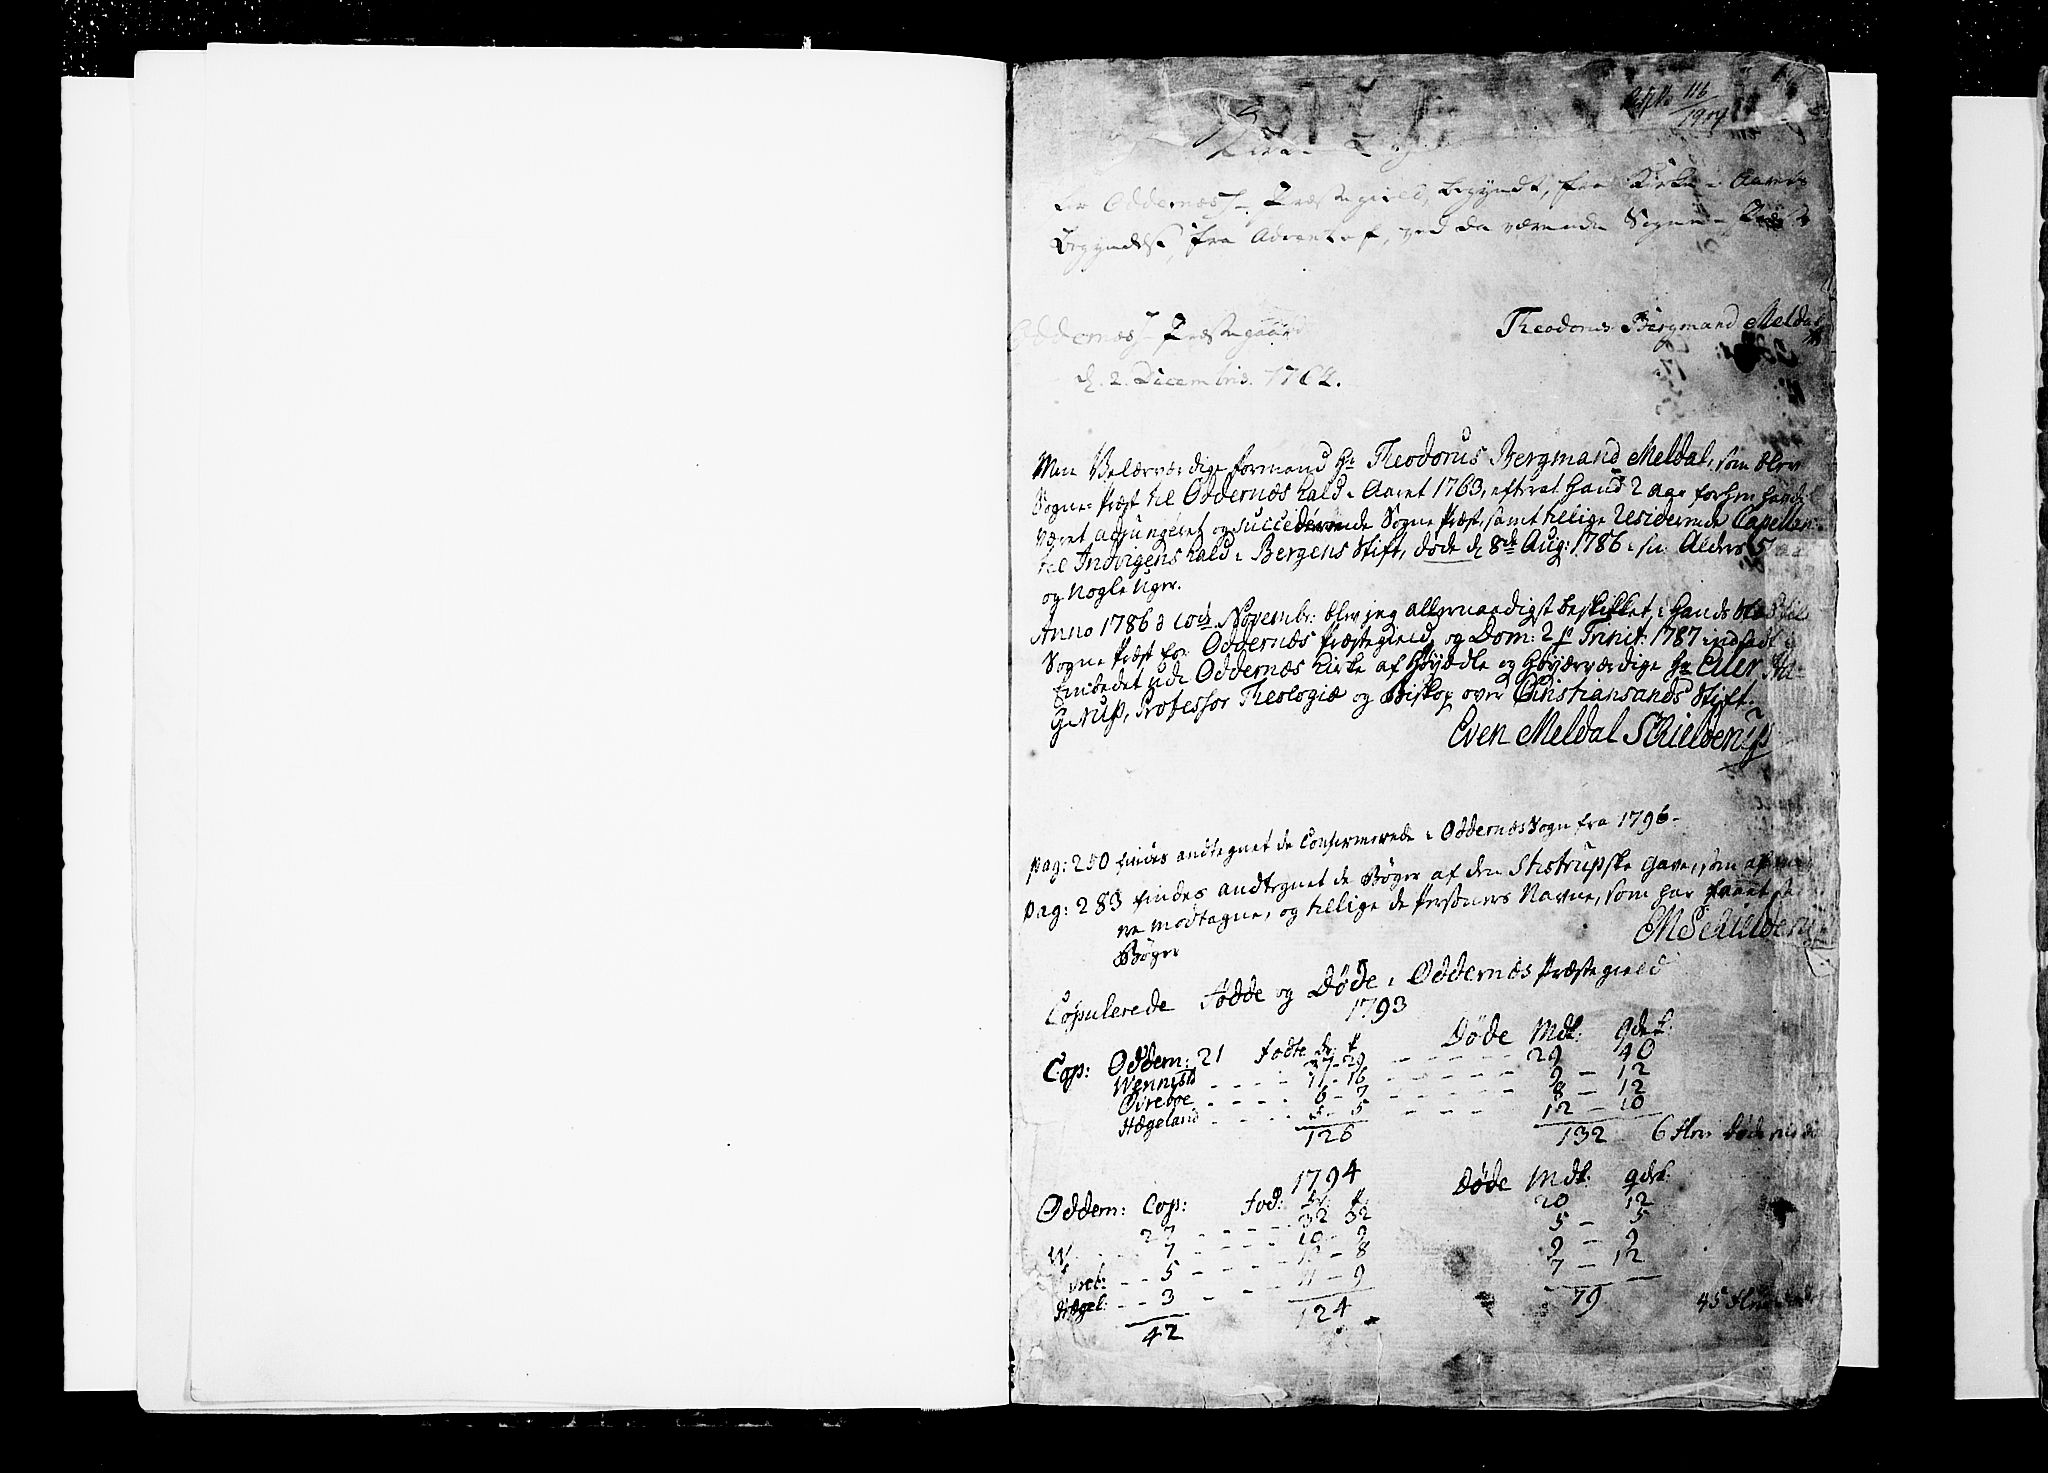 116
for Oddernæss Præstegield, begyndt, fra Kirke-Aarets
Begyndelse, fra Advent af, ved da værende Sogne-Præst
Theodorus Bergmand Meldal
Oddernæss Præstegaard
d. 2. Decembris. 1764.
Min Velærværdige formand Hr Theodorus Bergmand Meldal, som blev
Sogne-Præst til Oddernæs Kald i Aaret 1763, efterat hand 2 Aar forhen havde
været adjungeret og succederende Sogne Præst, samt tillige Residerende Capellan
til Indvigens Kald i Bergens Stift, døde d 8de Aug: 1786 i sin Alders
og Nogle Uger.
Anno 1786 d 10de Novembr: blev jeg allernaadigst beskikket i hands Stæd til
Sogne Præst for Oddernæs Præstegield, og Dom: 2 p Trinit: 1787 indsadt i
Embedet udi Oddernæs Kirke af Høyædle og Høyærværdige Hr Eiler Ha-
gerup, Professor Theologiæ og Biskop over Christiansands Stift.
Even Meldal Schielderup
pag: 250 findes andtegnet de Confirmerede i Oddernæs Sogn fra 1796.
pag: 283 findes andtegnet de Bøger af den Stistrupske Gave, som af
re modtagne, og tillige de Personers Navne, som har faaet
Bøger
EMSchielderup
Copulerede Fødde og Døde i Oddernæs Præstegield
1793
Cop: Oddern: 21 Fødte dr: p Døde Mdk: qdek:
37-29 - - - - 29 40
Wennisld - - - - 17-16 - - - - 9 - 12
Øvreboe - - - - 6-7 - - - - 8 - 12
Hægeland - - - - 5-5 - - - - 12 - 10
126 132 6 flere døde end
1794
Oddern: Cop: Fød: dr: p: Døde Mdk: qdk:
27 - - - - 32 32 20 12
W - - 7 - - - - 10-9 5 - 5
vreb: - - 5 - - - - 13-8 9 - 9
Hægel: - - 3 - - - - 11-9 7 - 12
42 124 79 45 flere